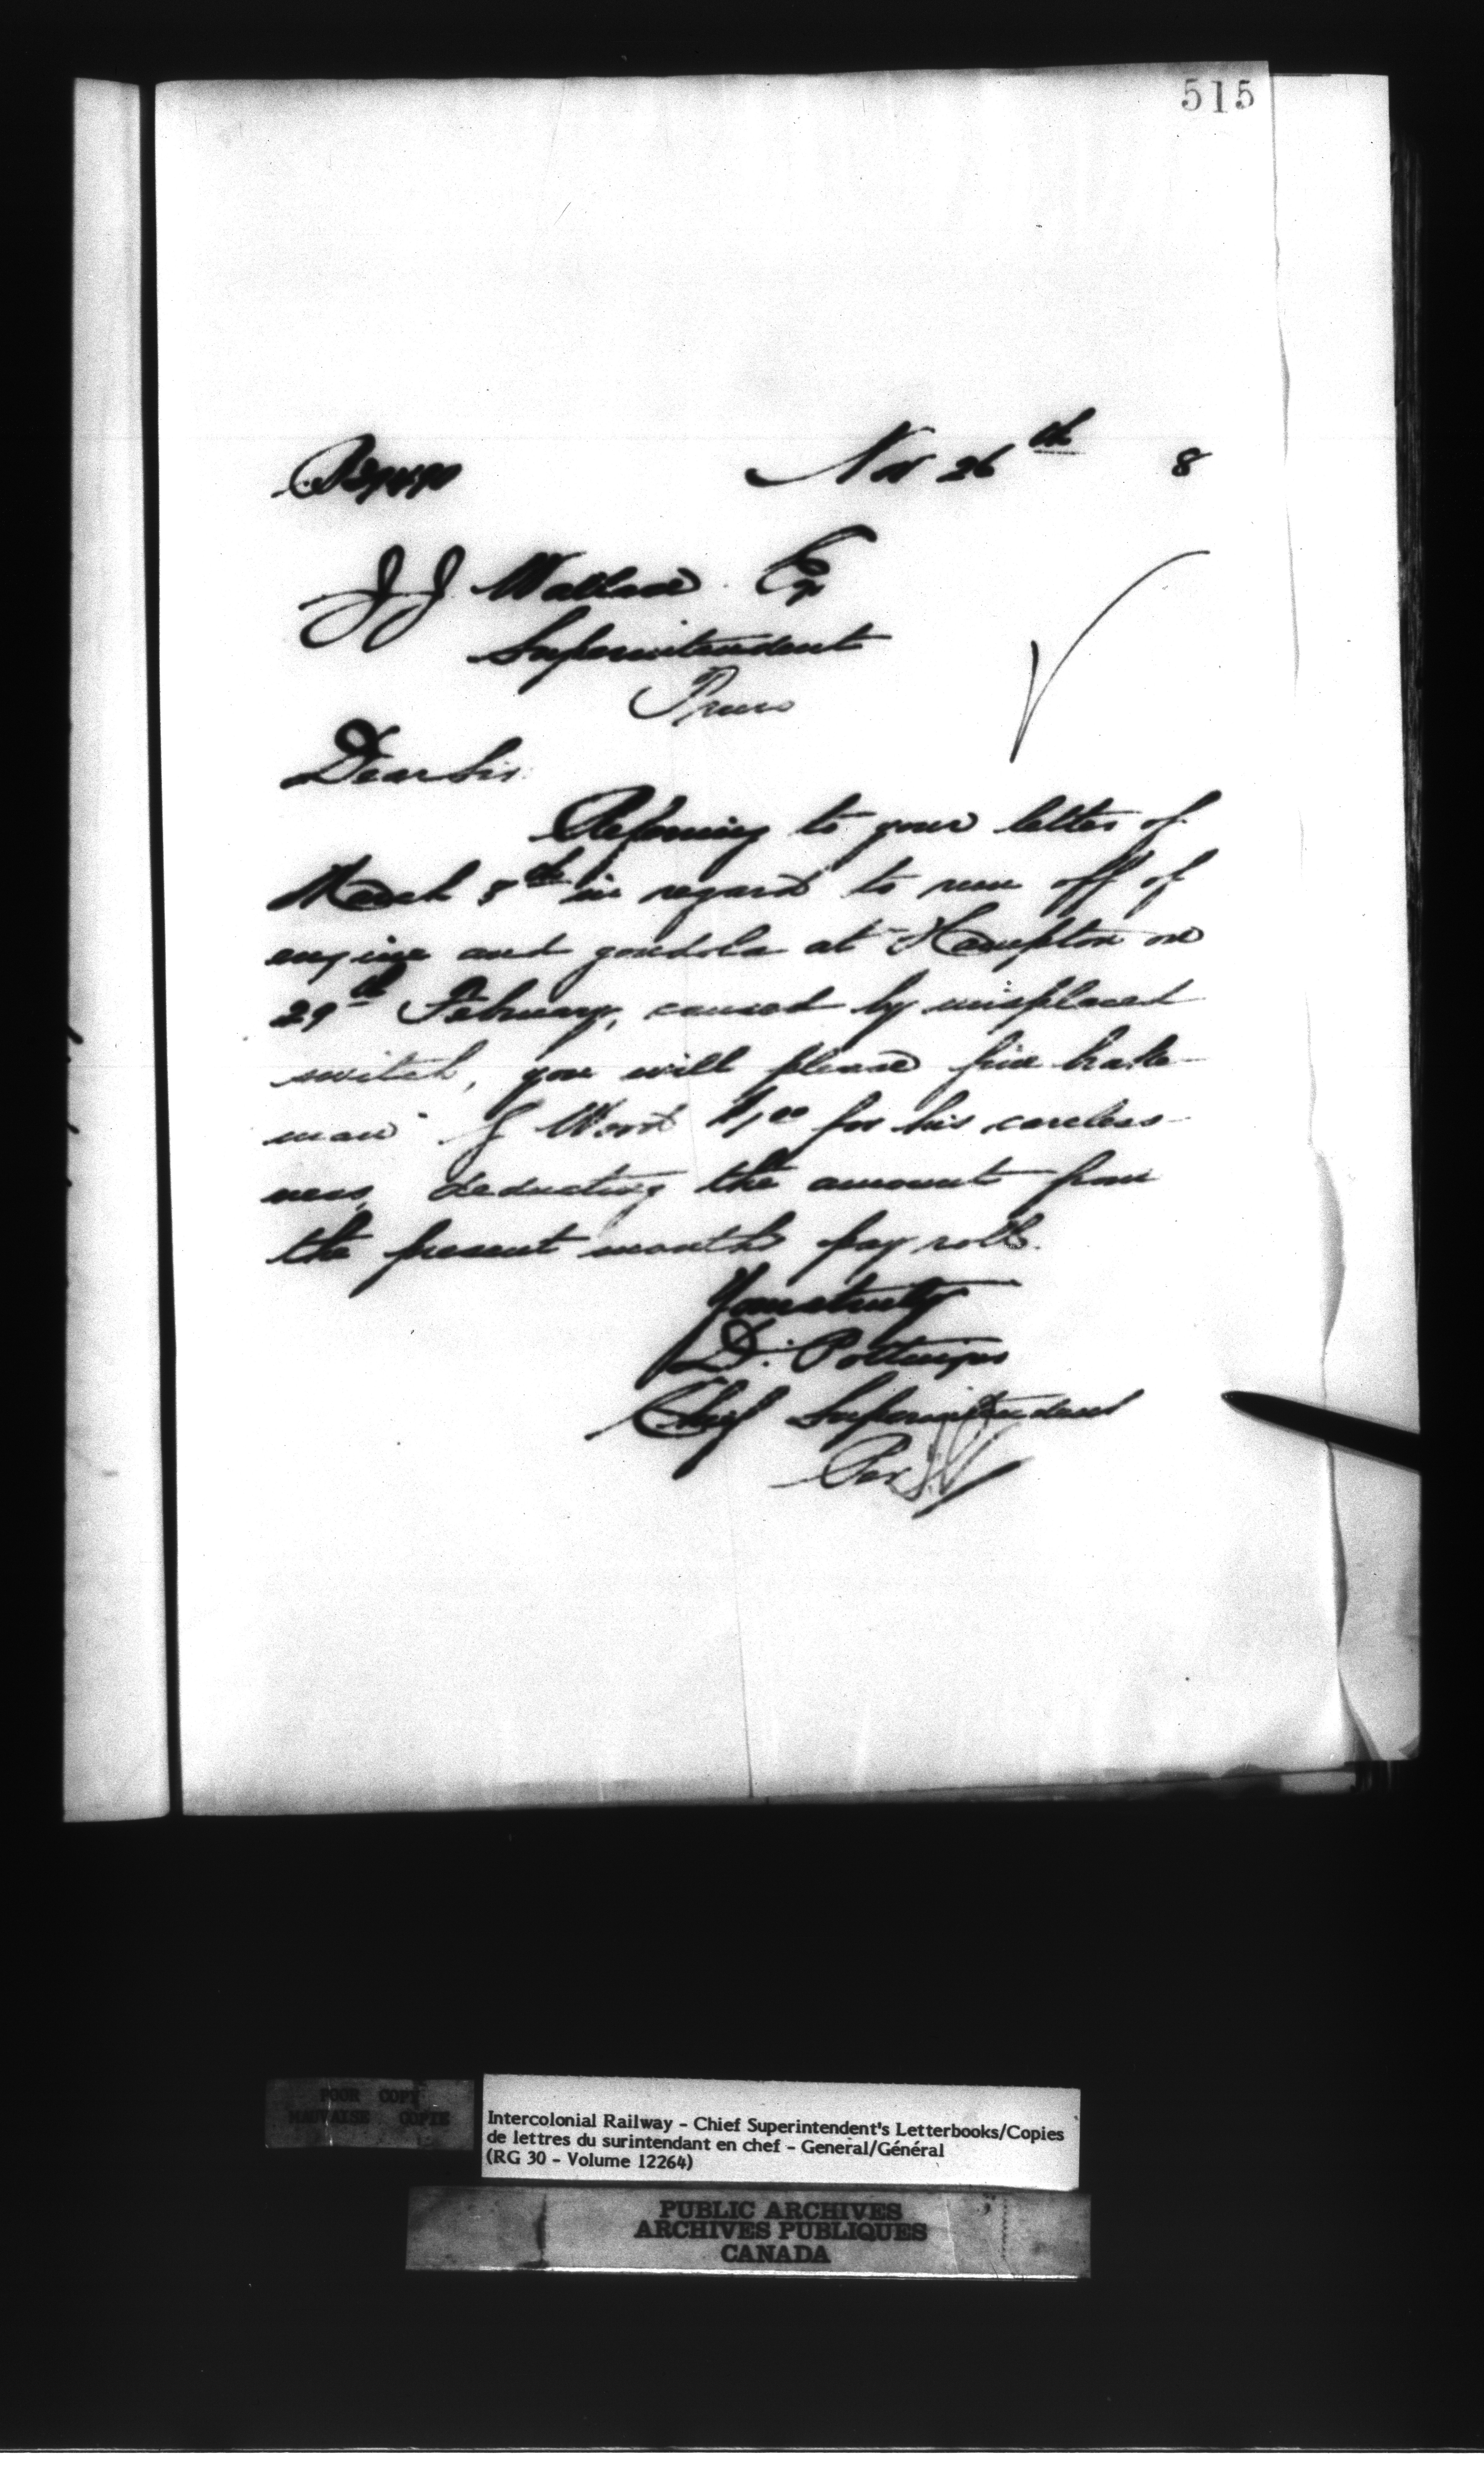 515
Nov 26th 8
J J Wallace Esq
Superintendent
Truro
Dear Sir
Referring to your letter of
March 5th in regard to run off of
engine and gondola at Hampton on
29th February, caused by misplaced
switch, you will please fine brake-
man J Wood $1.00 for his careless-
ness, deducting the amount from
the present months pay rolls.
Yours truly
D. Pottinger
Chief Superintendent
Per
POOR COPY
MAUVAISE COPIE
Intercolonial Railway - Chief Superintendent's Letterbooks/Copies
de lettres du surintendant en chef - General/Général
(RG 30 - Volume 12264)
PUBLIC ARCHIVES
ARCHIVES PUBLIQUES
CANADA